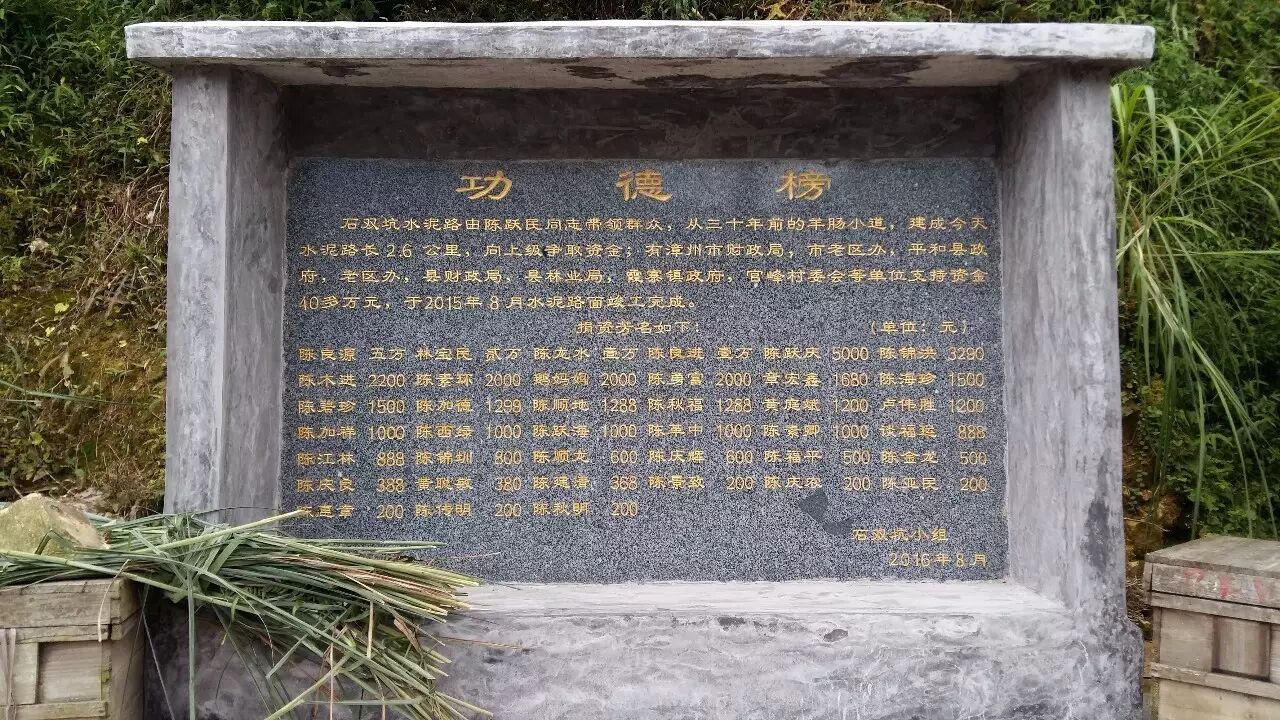 功德榜
石双坑水泥路由陈跃民同志带领群众，从三十年前的羊肠小道，建成今天
水泥路长2.6公里，向上级争取资金；有漳州市财政局，市老区办，平和县政
府，老区办，县财政局，县林业局，霞寨镇政府，官峰村委会等单位支持资金
40多万元，于2015年8月水泥路面竣工完成。
捐资芳名如下：（单位：元）
陈良源 五万 林宝民 贰万 陈龙水 壹万 陈良进 壹万 陈跃庆 5000 陈锦洪 3290
陈木进 2200 陈素环 2000 2000 陈勇富 2000 章宏鑫 1680 陈海珍 1500
陈碧珍 1500 陈加德 1298 陈顺地 1288 陈秋福 1288 黄庭斌 1200 卢伟胜 1200
陈加祥 1000 陈西绿 1000 陈跃海 1000 陈革中 1000 陈素卿 1000 888
陈江林 888 陈锦圳 800 陈顺龙 600 陈庆辉 600 陈福平 500 陈金龙 500
陈庆良 388 黄聪敏 380 陈建清 368 陈景致 200 陈庆农 200 陈亚民 200
200 陈传明 200 陈秋明 200
石双坑小组
2016年8月